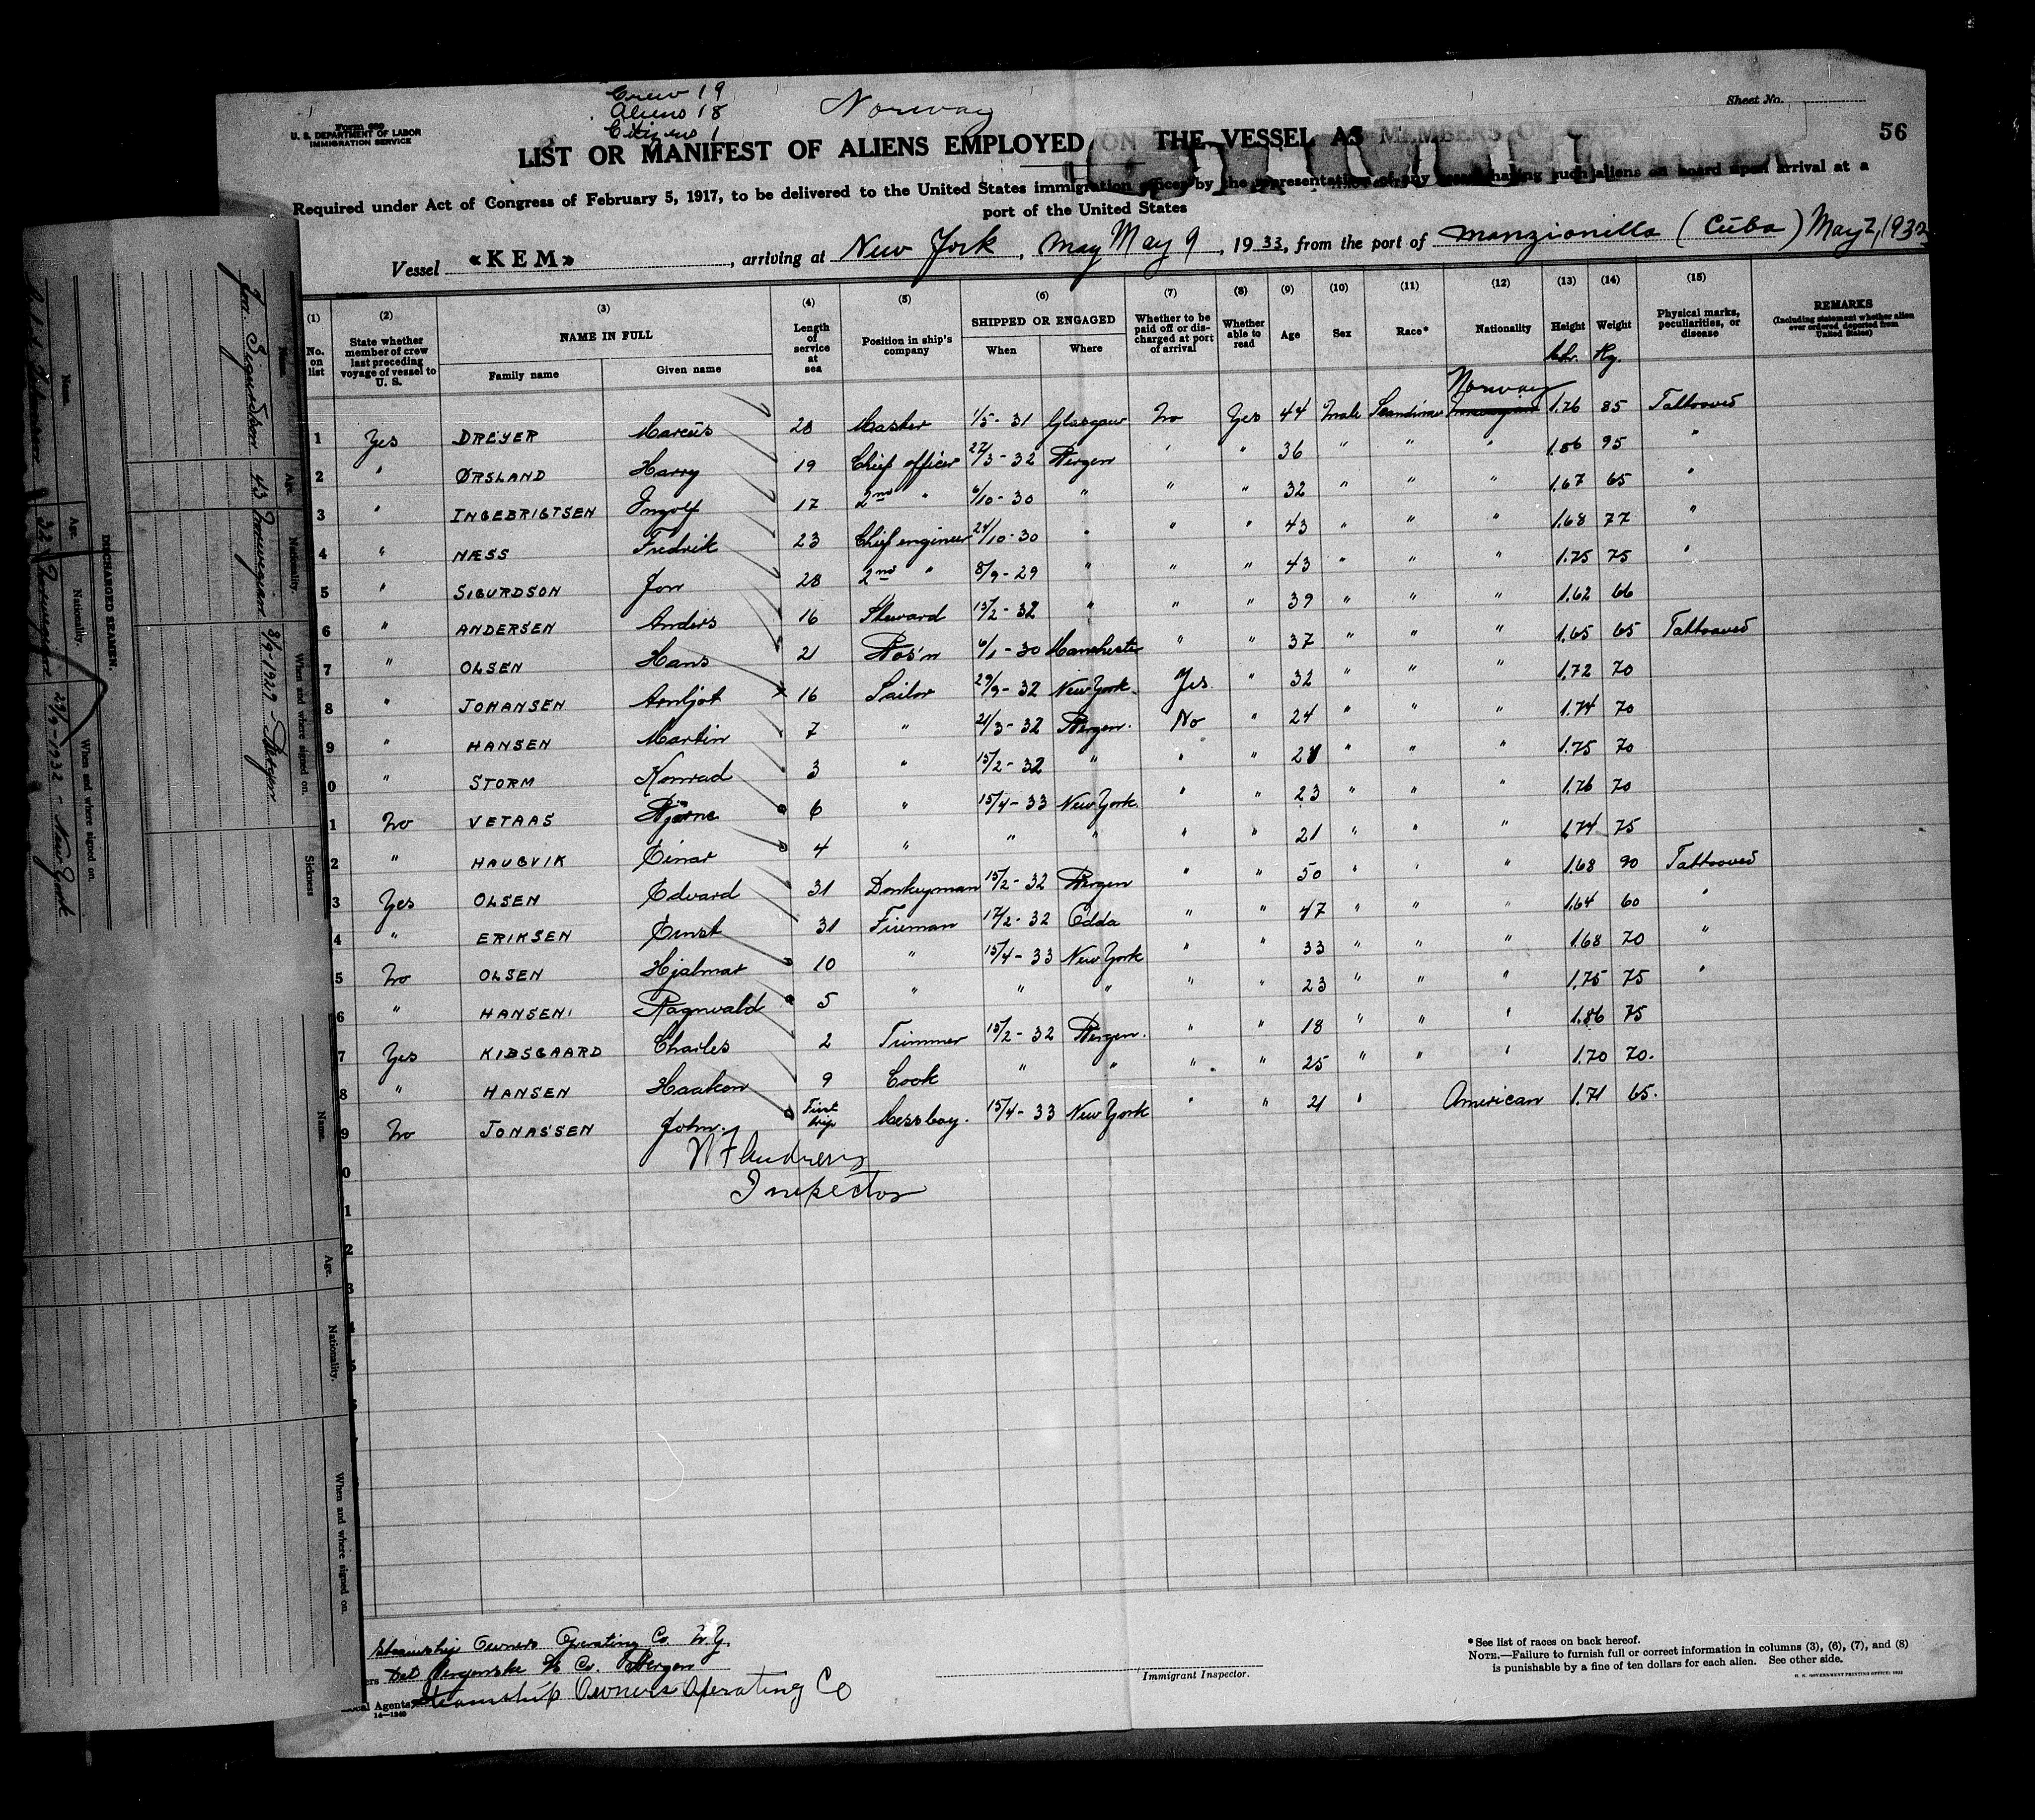 Crew 19
Aliens 18
Citizens 1
Norway
Sheet No.
56
Form 689
U. S. DEPARTMENT OF LABOR
IMMIGRATION SERVICE
LIST OR MANIFEST OF ALIENS EMPLOYED ON THE VESSEL AS MEMBERS OF CREW
Required under Act of Congress of February 5, 1917, to be delivered to the United States immigration officer by the representative of any vessel having such aliens on board upon arrival at a
port of the United States
Vessel «KEM», arriving at New York, May May 9, 1933, from the port of Manzionillo (Cuba) May 2, 1932
(1) No. on list
(2) State whether member of crew last preceding voyage of vessel to U. S.
(3) NAME IN FULL Family name Given name
(4) Length of service at sea
(5) Position in ship's company
(6) SHIPPED OR ENGAGED When Where
(7) Whether to be paid off or discharged at port of arrival
(8) Whether able to read
(9) Age
(10) Sex
(11) Race*
(12) Nationality
(13) Height
(14) Weight Kg.
(15) Physical marks, peculiarities, or disease
REMARKS (Including statement whether alien ever ordered deported from United States)
Norway
1 Yes DREYER Marcus 28 Master 1/5-31 Glasgow No Yes 44 Male Scandinav 1.76 85 Tattooed
2 " ØRSLAND Harry 19 Chief officer 22/3-32 Bergen " " 36 " " " 1.86 95 "
3 " INGEBRIGTSEN Ingolf 17 2nd " 6/10-30 " " " 32 " " " 1.67 65 "
4 " NÆSS Fredrik 23 Chief engineer 24/10-30 " " " 43 " " " 1.68 77 "
5 " SIGURDSON Jon 28 2nd " 8/9-29 " " " 43 " " " 1.75 75 "
6 " ANDERSEN Anders 16 Steward 15/2-32 " " " 39 " " " 1.62 66
7 " OLSEN Hans 21 Bos'n 6/1-30 Manchester " " 37 " " " 1.65 65 Tattooed
8 " JOHANSEN Arnljot 16 Sailor 29/9-32 New York Yes " 32 " " " 1.72 70
9 " HANSEN Martin 7 " 21/3-32 Bergen. No " 24 " " " 1.74 70
0 " STORM Konrad 3 " 15/2-32 " " " 21 " " " 1.75 70
1 No VETAAS Bjarne 6 " 15/4-33 New York " " 23 " " " 1.76 70
2 " HAUGVIK Einar 4 " " " " " 21 " " " 1.74 75
3 Yes OLSEN Edvard 31 Donkeyman 15/2-32 Bergen " " 50 " " " 1.68 90 Tattooed
4 " ERIKSEN Ernst 31 Fireman 17/2-32 Odda " " 47 " " " 1.64 60 "
5 No OLSEN Hjalmar 10 " 15/4-33 New York " " 33 " " " 1.68 70 "
6 " HANSEN Ragnvald 5 " " " " " 23 " " " 1.75 75 "
7 Yes KIBSGAARD Charles 2 Trimmer 15/2-32 Bergen. " " 18 " " " 1.86 75
8 " HANSEN Haakon 9 Cook " " " " 25 " " " 1.70 70.
9 No JONASSEN John. First trip Messboy. 15/4-33 New York " " 21 " American 1.71 65.
0
1
2
3
Inspector
Steamship Owners Operating Co. N.Y.
Det Bergenske Co. Bergen
Local Agents Steamship Owners Operating Co
14—1240
Immigrant Inspector.
*See list of races on back hereof.
NOTE.—Failure to furnish full or correct information in columns (3), (6), (7), and (8)
is punishable by a fine of ten dollars for each alien. See other side.
U. S. GOVERNMENT PRINTING OFFICE: 1932
DISCHARGED SEAMEN.
Name. Age. Nationality. When and where signed on.
32 Norwegian 29/9-1932 - New York
Name. Age. Nationality. When and where signed on.
Jon Sigurdson 43 Norwegian 8/9-1929 Bergen
Sickness
Name. Age. Nationality. When and where signed on.